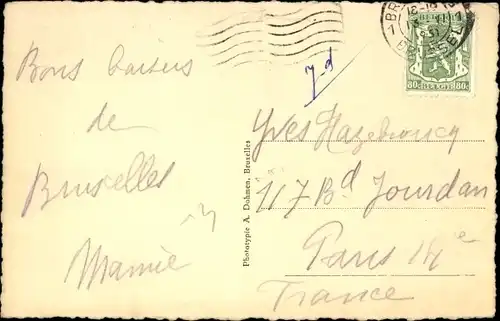 Bons baisers
de
Bruxelles
Mamie
Phototypie A. Dohmen, Bruxelles
7-d
80c 80c
Yves Hazebroucq
117 Bd Jourdan
Paris 14e
France